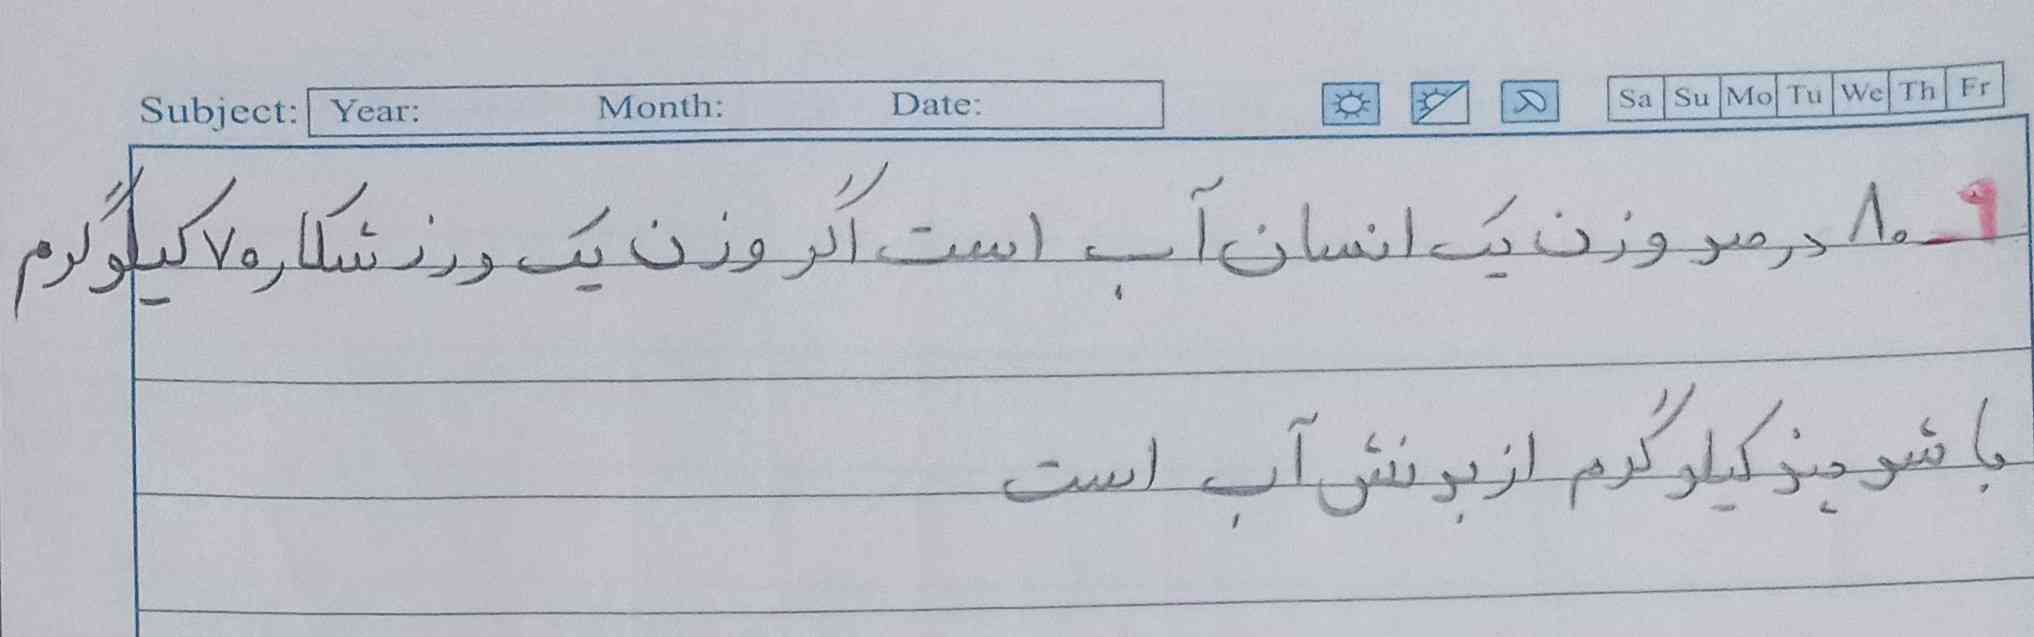 Subject: Year: Month: Date: Sa Su Mo Tu We Th Fr
۹_ ۸۰ درصد وزن یک انسان آب است اگر وزن یک ورزشکار ۷۰ کیلوگرم
باشد چند کیلوگرم از بدنش آب است